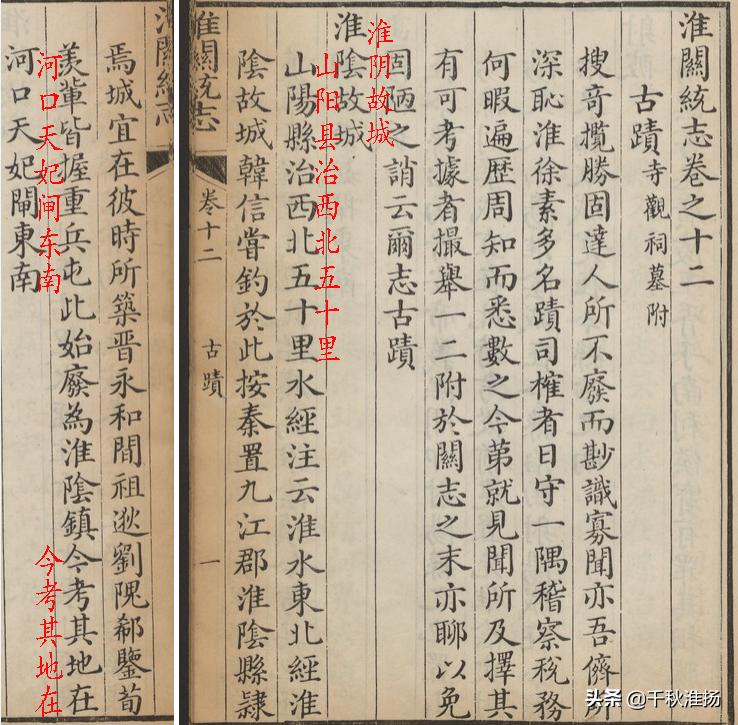 淮關統志卷之十二
古蹟 寺觀祠墓附
搜奇攬勝固達人所不廢而尠識寡聞亦吾儕所
深恥淮徐素多名蹟司榷者日守一隅稽察稅務
何暇遍歷周知而悉數之今苐就見聞所及擇其
有可考據者撮舉一二附於關志之末亦聊以免
固陋之誚云爾志古蹟
淮阴故城
淮陰故城
山阳县治西北五十里
山陽縣治西北五十里水經注云淮水東北經淮
陰故城韓信甞釣於此按秦置九江郡淮陰縣隸
淮關統志 卷十二 古蹟 一
淮關統志
焉城宜在彼時所築晉永和間祖逖劉隗郗鑒荀
羨輩皆握重兵屯此始廢為淮陰鎮今考其地在
今考其地在
河口天妃闸东南
河口天妃閘東南
头条 @千秋淮扬